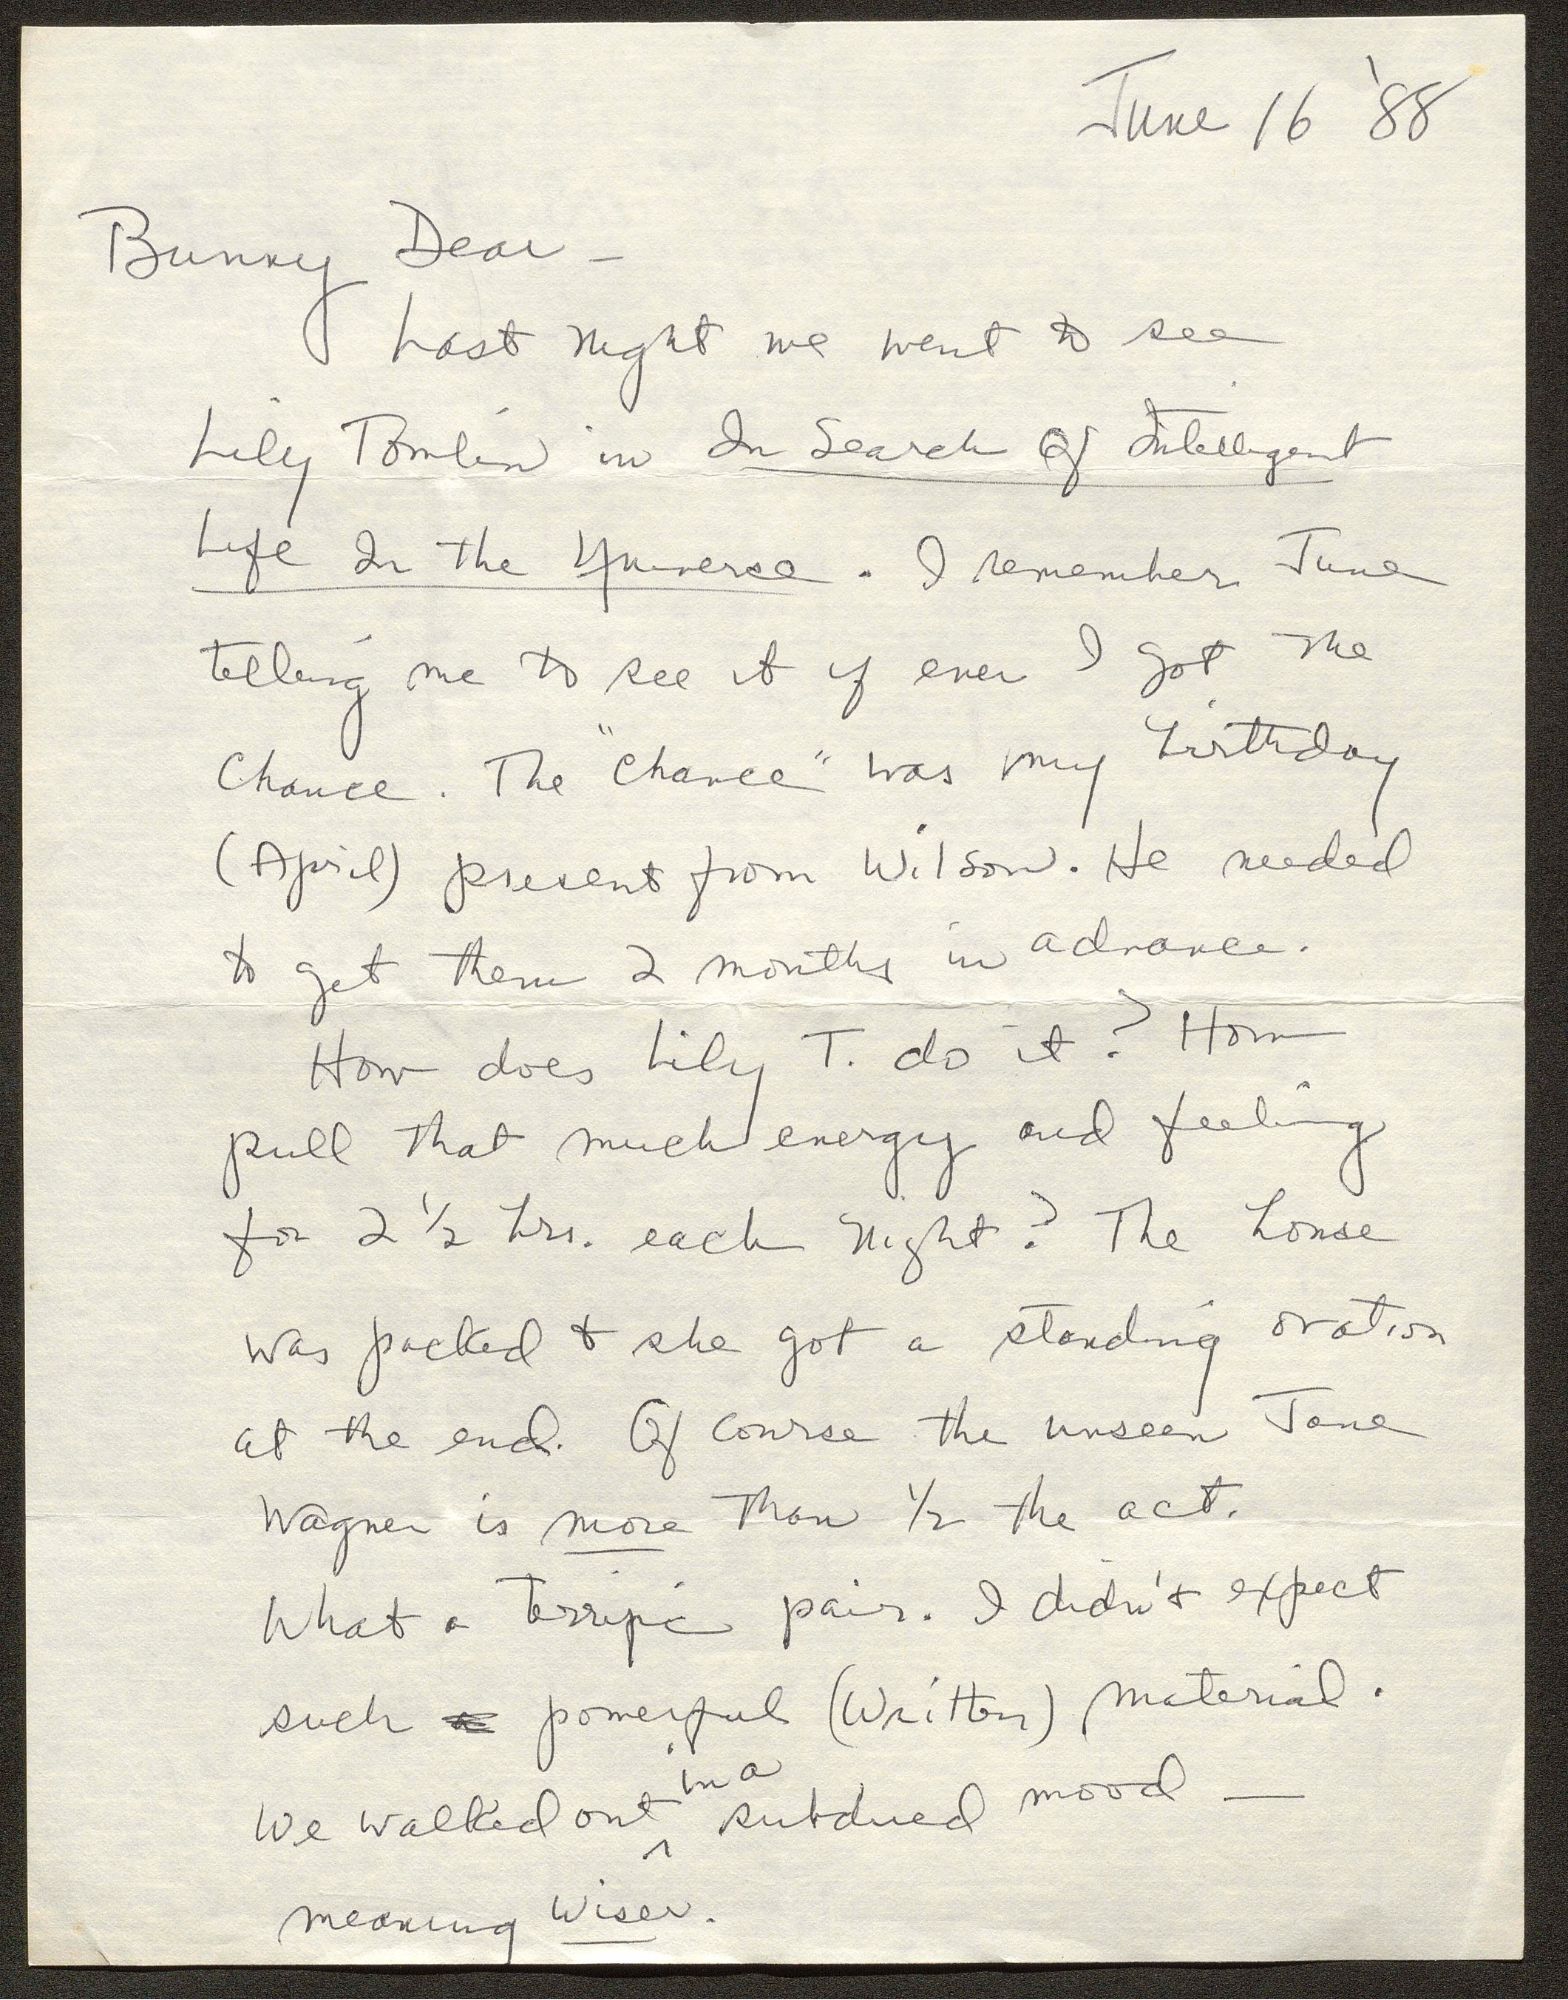 June 16 '88
Bunny Dear –
Last night we went to see
Lily Tomlin in In Search Of Intelligent
Life In the Universe. I remember June
telling me to see it if ever I got the
Chance. The "Chance" was my birthday
(April) present from Wilson. He needed
to get them 2 months in advance.
How does Lily T. do it? How
pull that much energy and feeling
for 2 1/2 hrs. each night? The house
was packed & she got a standing ovation
at the end. Of course the unseen Jane
Wagner is more than 1/2 the act.
What a terrific pair. I didn't expect
such powerful (Written) material.
We walked out in a subdued mood —
meaning wiser.